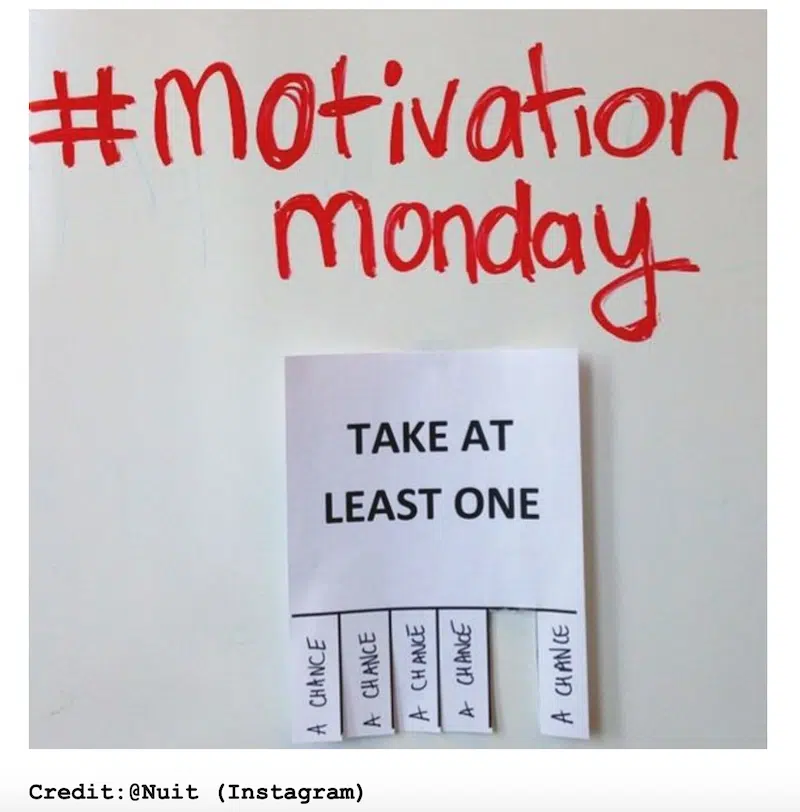 #motivation
monday
TAKE AT
LEAST ONE
A CHANCE
A CHANCE
A CHANCE
A CHANCE
A CHANCE
Credit:@Nuit (Instagram)